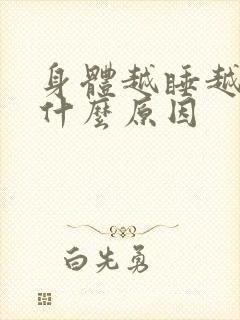 身體越睡越
什麼原因
白先勇